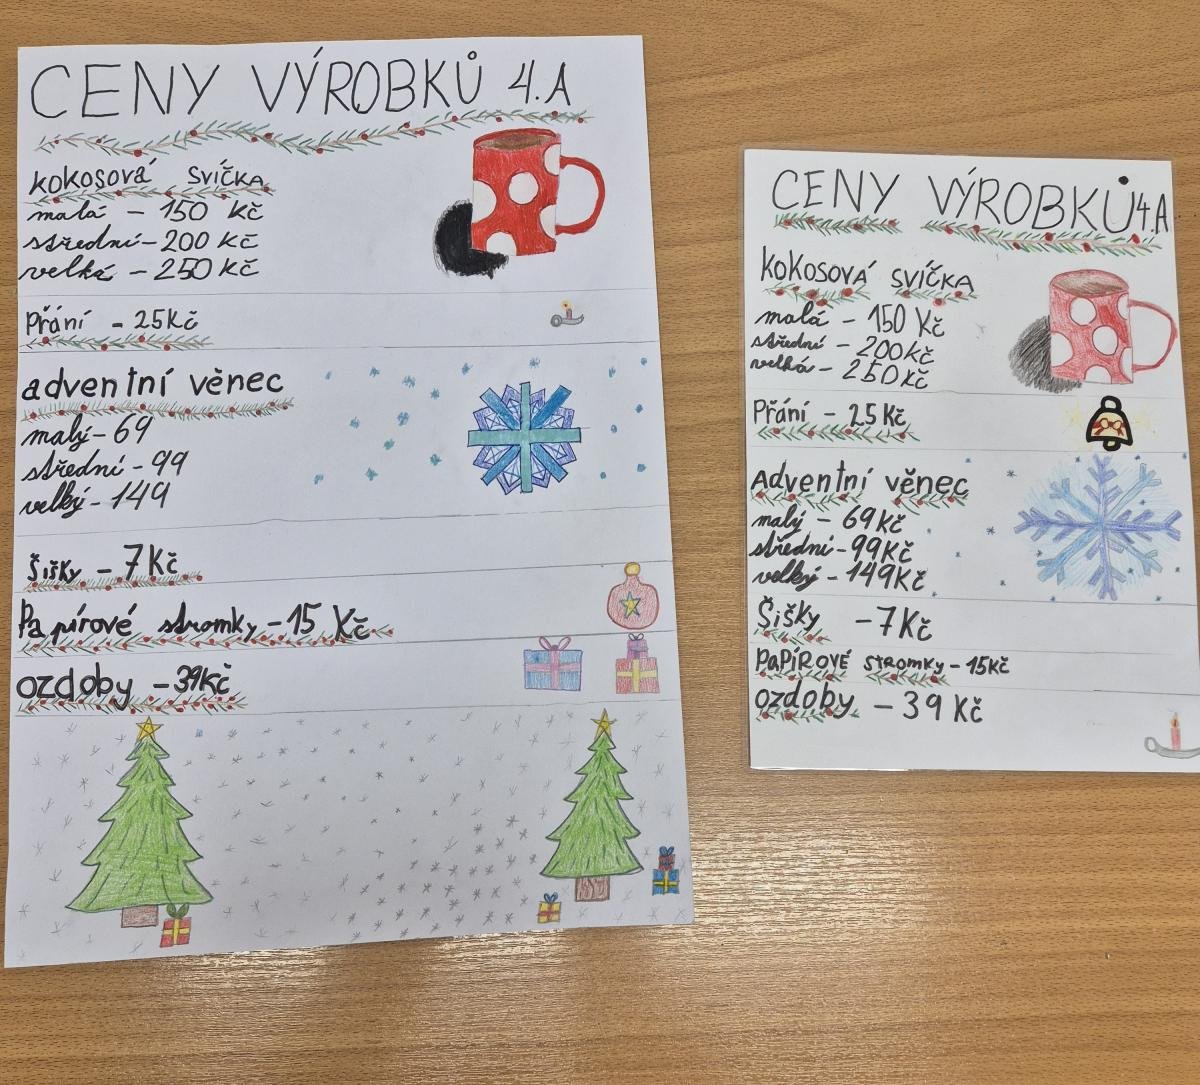 CENY VÝROBKŮ 4.A
kokosová svíčka
malá - 150 Kč
střední - 200 Kč
velká - 250 Kč
Přání - 25Kč
adventní věnec
malý - 69
střední - 99
velký - 149
Šišky - 7Kč
Papírové stromky - 15 Kč
ozdoby - 39Kč
CENY VÝROBKŮ 4.A
kokosová svíčka
malá - 150 Kč
střední - 200Kč
velká - 250Kč
Přání - 25 Kč
Adventní věnec
malý - 69Kč
střední - 99Kč
velký - 149Kč
Šišky - 7Kč
PAPÍROVÉ stromky - 15Kč
ozdoby - 39 Kč